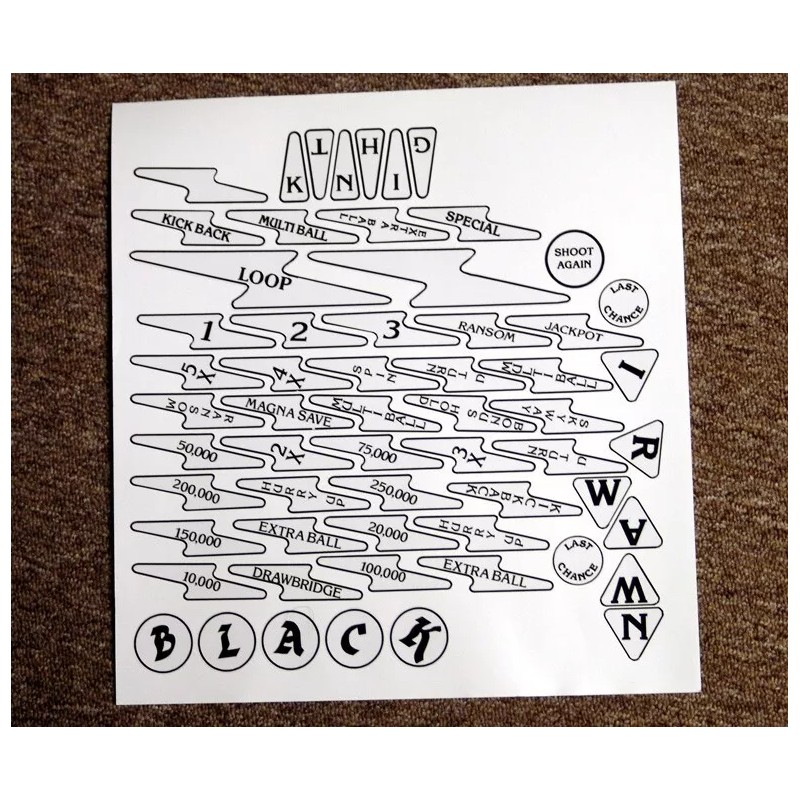 K T N H I G
KICK BACK MULTI BALL EXTRA BALL SPECIAL
SHOOT
AGAIN
LOOP
LAST
CHANCE
1 2 3 RANSOM JACKPOT
5X 4X SPIN U TURN MULTI BALL
I
RANSOM MAGNA SAVE MULTI BALL BONUS HOLD SKY WAY
50,000 2X 75,000 3X U TURN
R
200,000 HURRY UP 250,000 KICK BACK
W
A
150,000 EXTRA BALL 20,000 HURRY UP
LAST
CHANCE
10,000 DRAWBRIDGE 100,000 EXTRA BALL
W
N
B L A C K